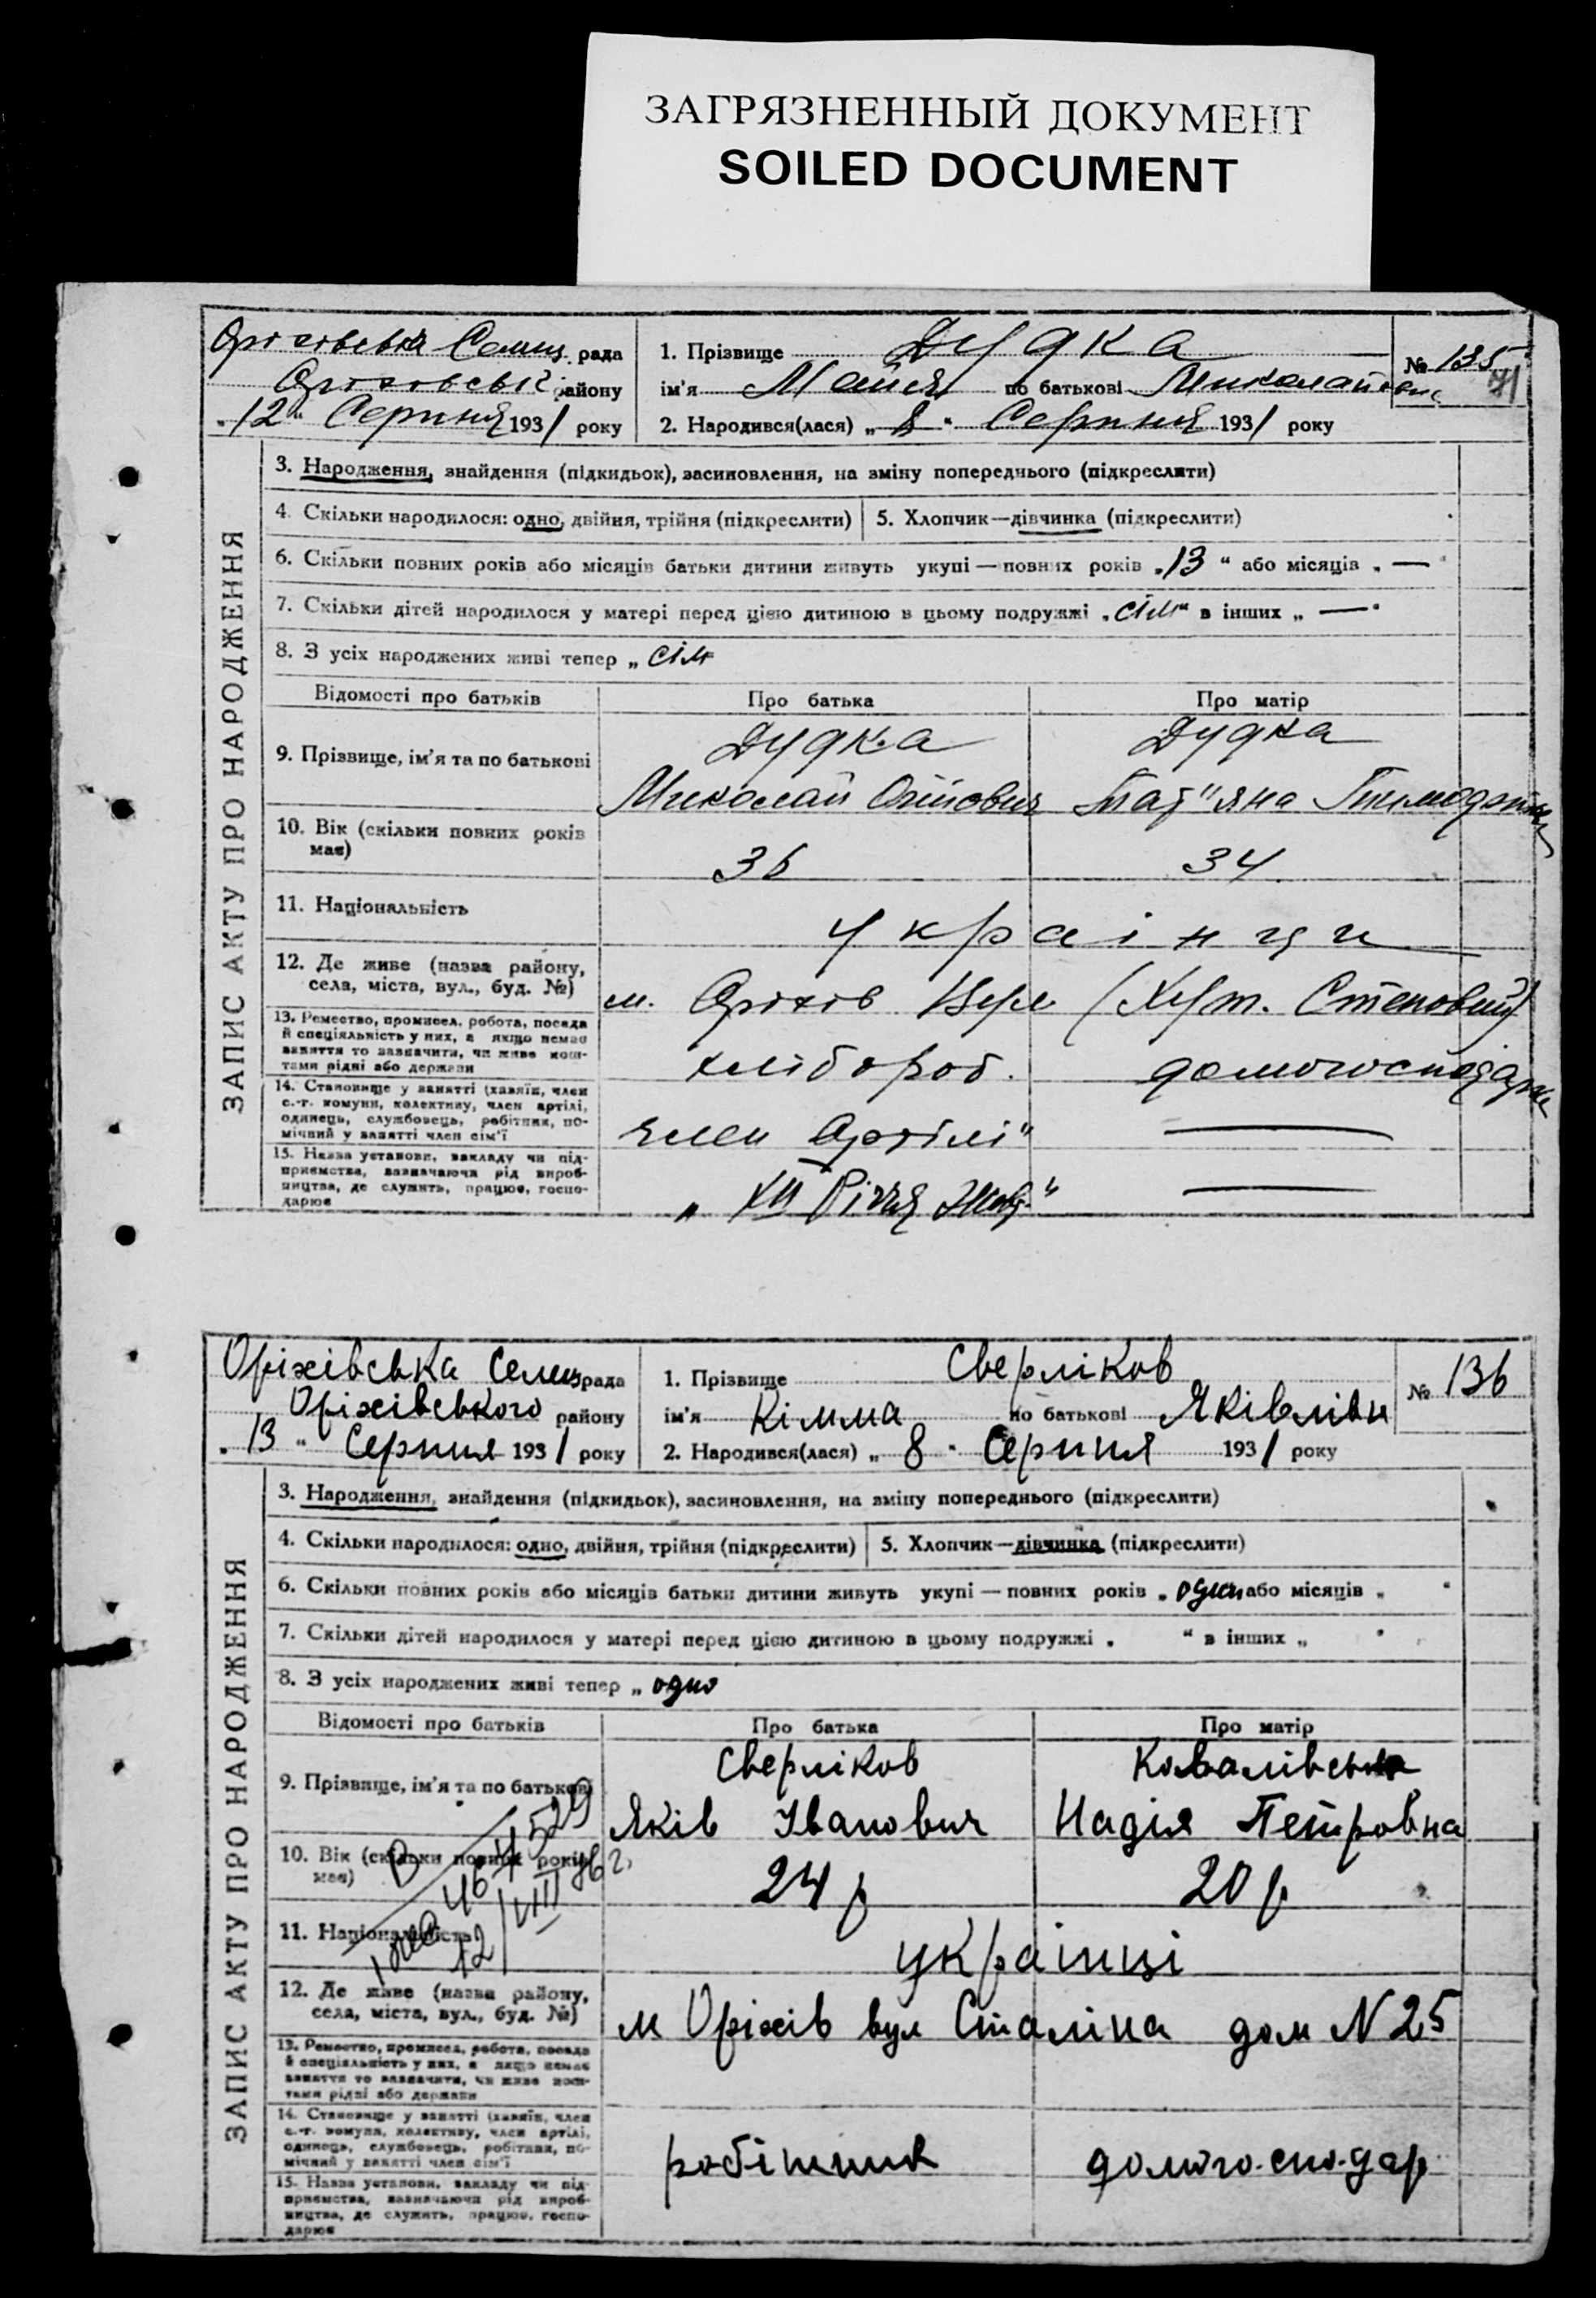 ЗАГРЯЗНЕННЫЙ ДОКУМЕНТ
SOILED DOCUMENT
ЗАПИС АКТУ ПРО НАРОДЖЕННЯ
Оріхівська Селищ. рада
Оріхівськ. району
"12" Серпня 1931 року
1. Прізвище Дудка
ім'я Майя по батькові Миколаївна
№ 135
71
2. Народився(лася) „8" Серпня 1931 року
3. Народження, знайдення (підкидьок), засиновлення, на зміну попереднього (підкреслити)
4. Скільки народилося: одно, двійня, трійня (підкреслити)
5. Хлопчик—дівчинка (підкреслити)
6. Скільки повних років або місяців батьки дитини живуть укупі — повних років „13" або місяців „—"
7. Скільки дітей народилося у матері перед цією дитиною в цьому подружжі „сім" в інших „—"
8. З усіх народжених живі тепер „сім
Відомості про батьків
Про батька
Про матір
9. Прізвище, ім'я та по батькові
Дудка
Миколай
Дудка
Тат"яна
10. Вік (скільки повних років має)
36
34
11. Національність
українци
12. Де живе (назва району, села, міста, вул., буд. №)
м. Оріхів (Хут. Степовий)
13. Ремество, промисел, робота, посада й спеціяльність у них, а якщо немає заняття то зазначити, чи живе коштами рідні або держави
хлібороб.
домогосподарка
14. Становище у занятті (хазяїн, член с.-г. комуни, колективу, член артілі, одинець, службовець, робітник, помічний у занятті член сім'ї
член Артілі"
15. Назва установи, закладу чи підприємства, зазначаючи рід виробництва, де служить, працює, господарює
„XII Річчя Жовт."
ЗАПИС АКТУ ПРО НАРОДЖЕННЯ
Оріхівська Селищ рада
Оріхівського району
„13" Серпня 1931 року
1. Прізвище Сверліков
ім'я Кімма по батькові Яківлівн
№ 136
2. Народився(лася) „8" Серпня 1931 року
3. Народження, знайдення (підкидьок), засиновлення, на зміну попереднього (підкреслити)
4. Скільки народилося: одно, двійня, трійня (підкреслити)
5. Хлопчик—дівчинка (підкреслити)
6. Скільки повних років або місяців батьки дитини живуть укупі — повних років „один або місяців „ "
7. Скільки дітей народилося у матері перед цією дитиною в цьому подружжі „ " в інших „ "
8. З усіх народжених живі тепер „одно
Відомості про батьків
Про батька
Про матір
9. Прізвище, ім'я та по батькові
Сверліков
Яків Іванович
Ковалівська
Надія Петровна
10. Вік (скільки повних років має)
24 р
20 р
12/VIII 46 г.
11. Національність
українці
12. Де живе (назва району, села, міста, вул., буд. №)
м Оріхів вул Сталіна дом N 25
13. Ремество, промисел, робота, посада й спеціяльність у них, а якщо немає заняття то зазначити, чи живе коштами рідні або держави
14. Становище у занятті (хазяїн, член с.-г. комуни, колективу, член артілі, одинець, службовець, робітник, помічний у занятті член сім'ї
робітник
домогосподар
15. Назва установи, закладу чи підприємства, зазначаючи рід виробництва, де служить, працює, господарює